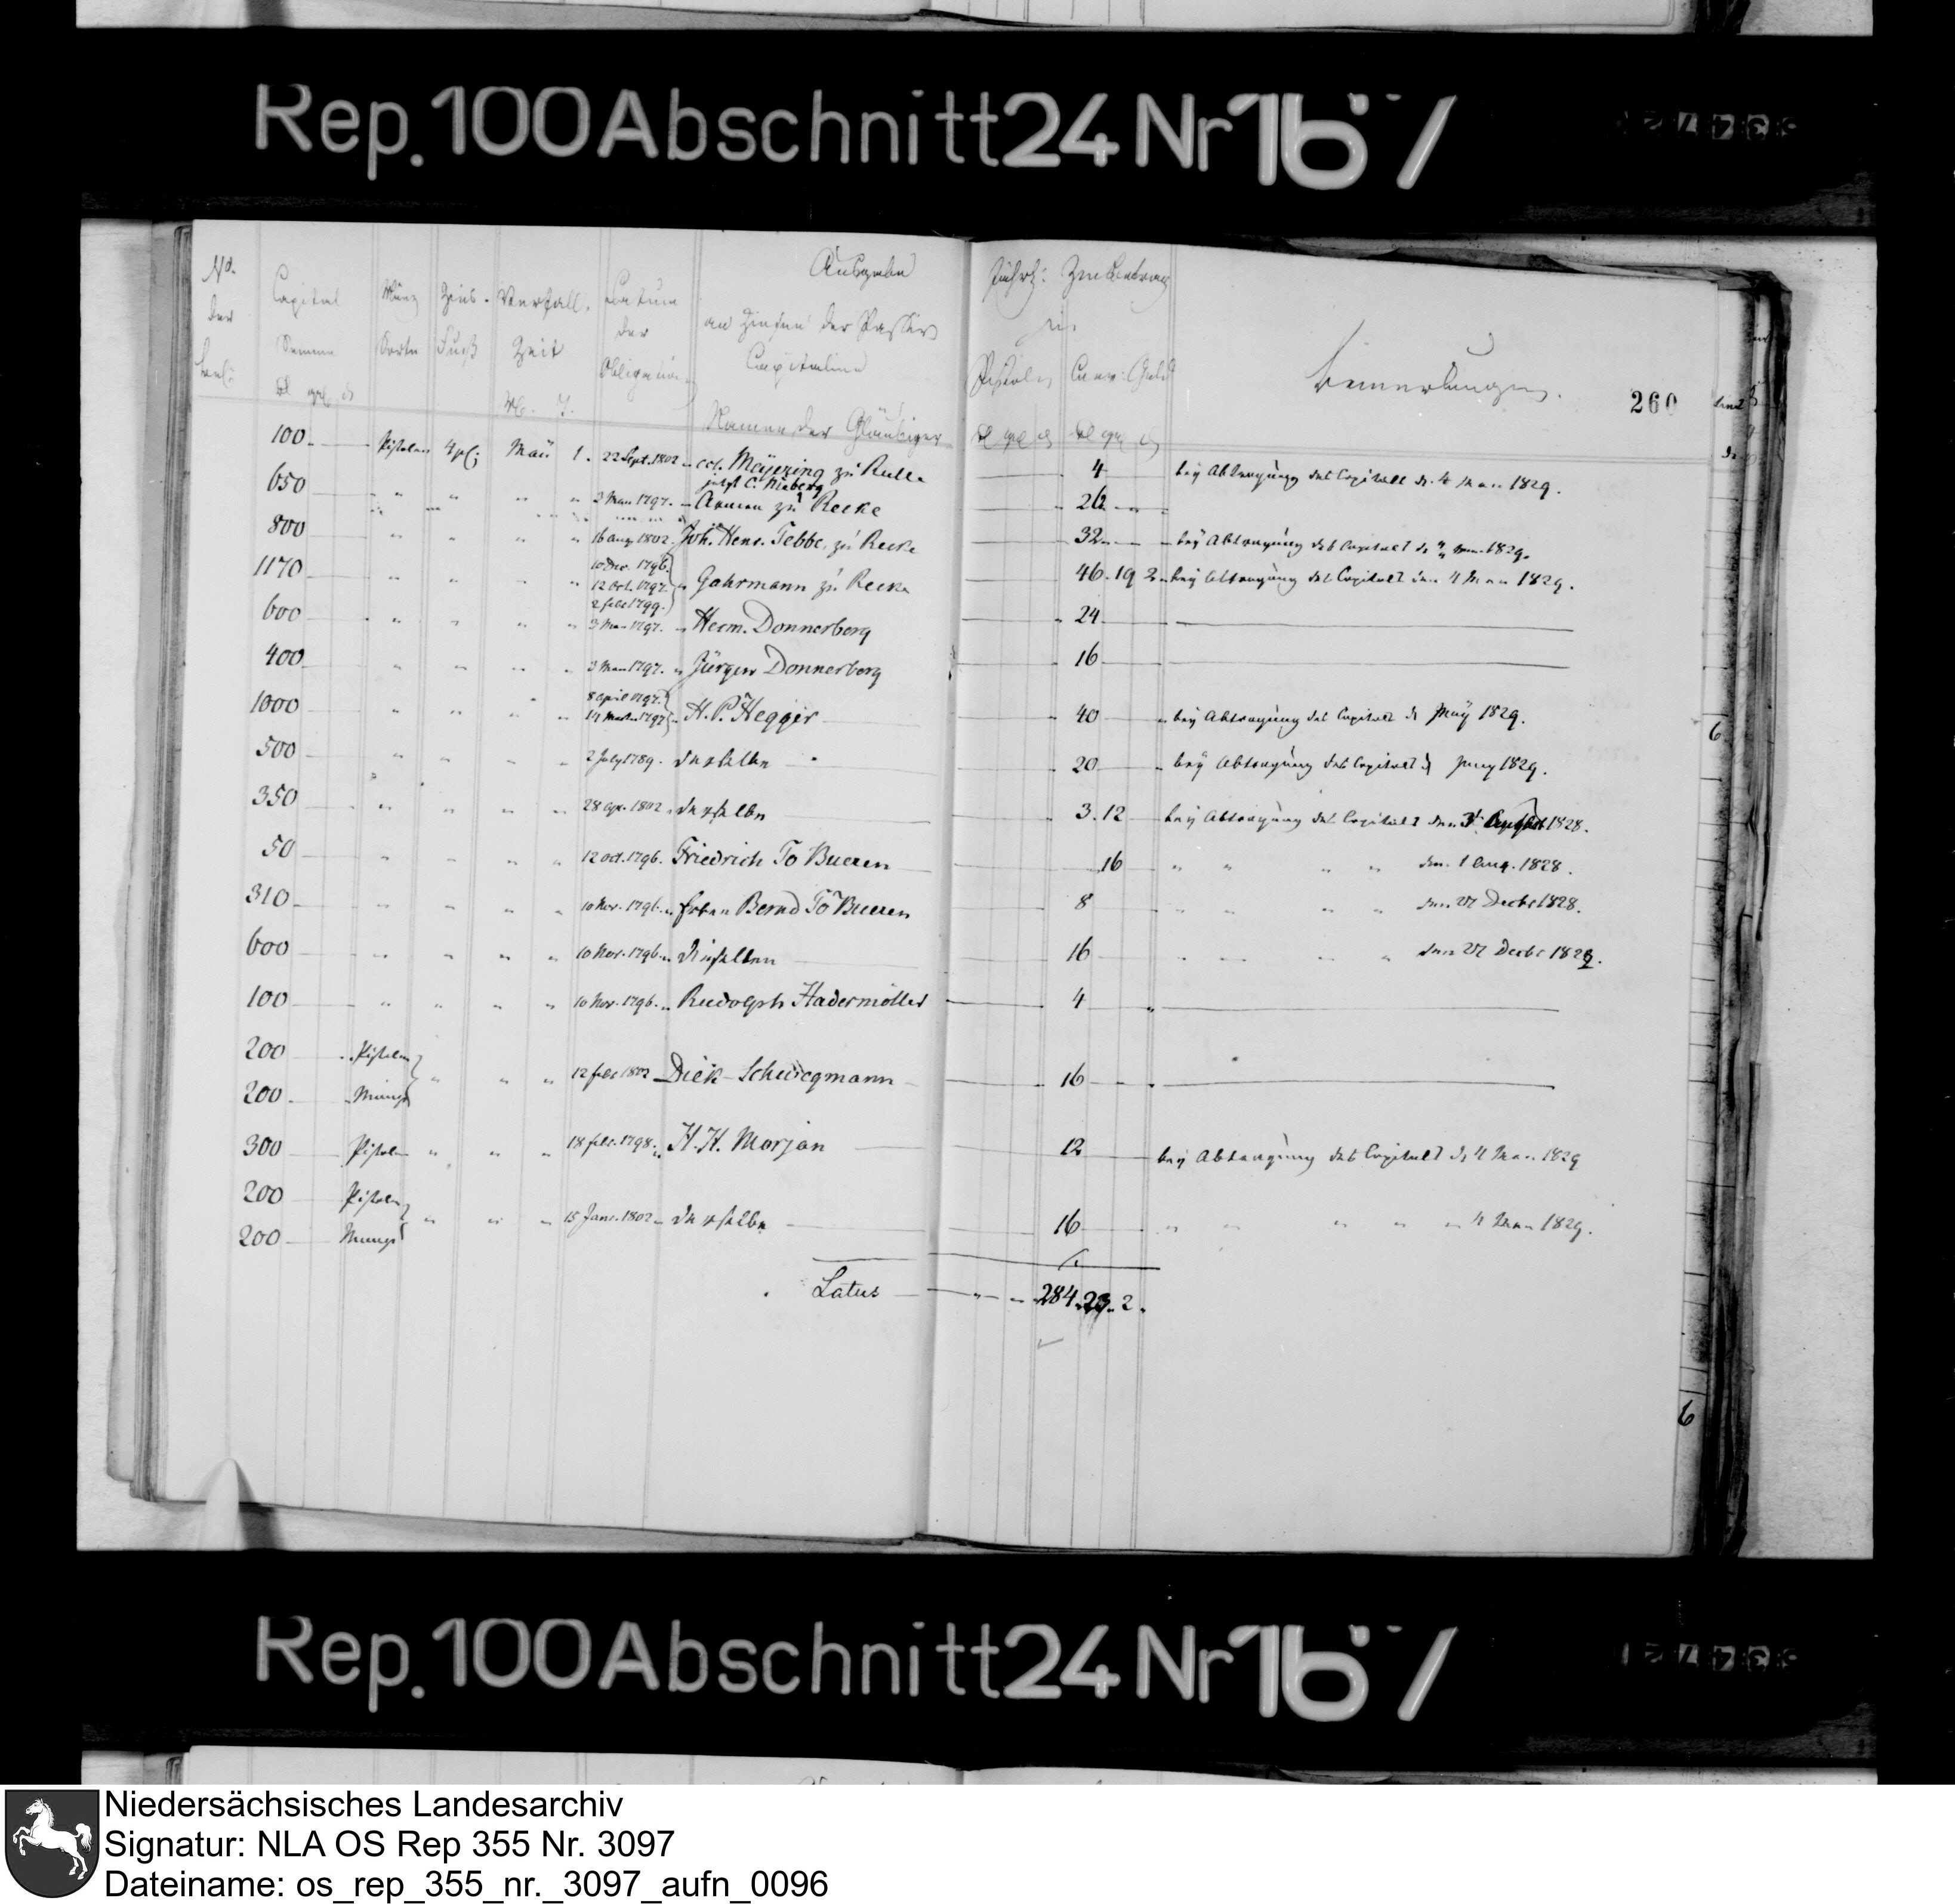 Rep. 100 Abschnitt 24 Nr 167
No. der
Capital Summe
Münz Sorte
Zins- Fuß
Verfall- Zeit
Datum der Obligation
Ausgabe
an Zinsen der Passiv
Capitalien
Namen der Gläubiger
Jährl: Zinsbetrag
in
Pistolen Conv: Geld
Bemerkungen.
260
100 Pistolen 4 pC; Maii 1. 22 Sept. 1802 Col. Meÿering zu Rulle 4 beÿ Abtragung des Capitals d. 4 1829.
jetzt C. Nieberg
650 " " " " 3 1797. Armen zu Recke 26
800 " " " " 16 Aug 1802. Joh. Henr. Tebbe, zu Recke 32 beÿ Abtragung des Capitals 1829.
1170 " " " " 1796. 12 Oct. 1797. 2 febr 1799. Gahrmann zu Recke 46. 19 2 beÿ Abtragung des Capitals 1829.
600 " " " " 3 1797. Herm. Donnerberg 24
400 " " " " 3 1797. Jürgen Donnerberg 16
1000 " " " " 8 April 1797. 1797 H. P. Hegger 40 beÿ Abtragung des Capitals d Maÿ 1829.
500 " " " " 2 July 1789. derselbe 20 beÿ Abtragung des Capitals d Juny 1829.
350 " " " " 28 1802 derselbe 3. 12 beÿ Abtragung des Capitals den 1828.
50 " " " " 12 oct. 1796. Friedrich To Bueren 16 " " " " den 1 Aug. 1828.
310 " " " " 10 Nov. 1796. Erben Bernd To Bueren 8 " " " " den 27 Decbr 1828.
600 " " " " 10 Nov. 1796. dieselben 16 " " " " den 27 Decbr 1828.
100 " " " " 10 Nov. 1796. Rudolph Hadermöller 4
200 Pistolen
" " " 12 febr 1802 Dick-Schwegmann 16
200 Münze
300 Pistolen " " " 18 febr. 1798. H. H. Morjan 12 beÿ Abtragung des Capitals 1829
200 Pistolen
" " " 15 Janr. 1802 derselbe 16 " " " " 1829.
200 Münze
Latus 284. 23. 2.
6
6
Rep. 100 Abschnitt 24 Nr 167
Niedersächsisches Landesarchiv
Signatur: NLA OS Rep 355 Nr. 3097
Dateiname: os_rep_355_nr._3097_aufn_0096